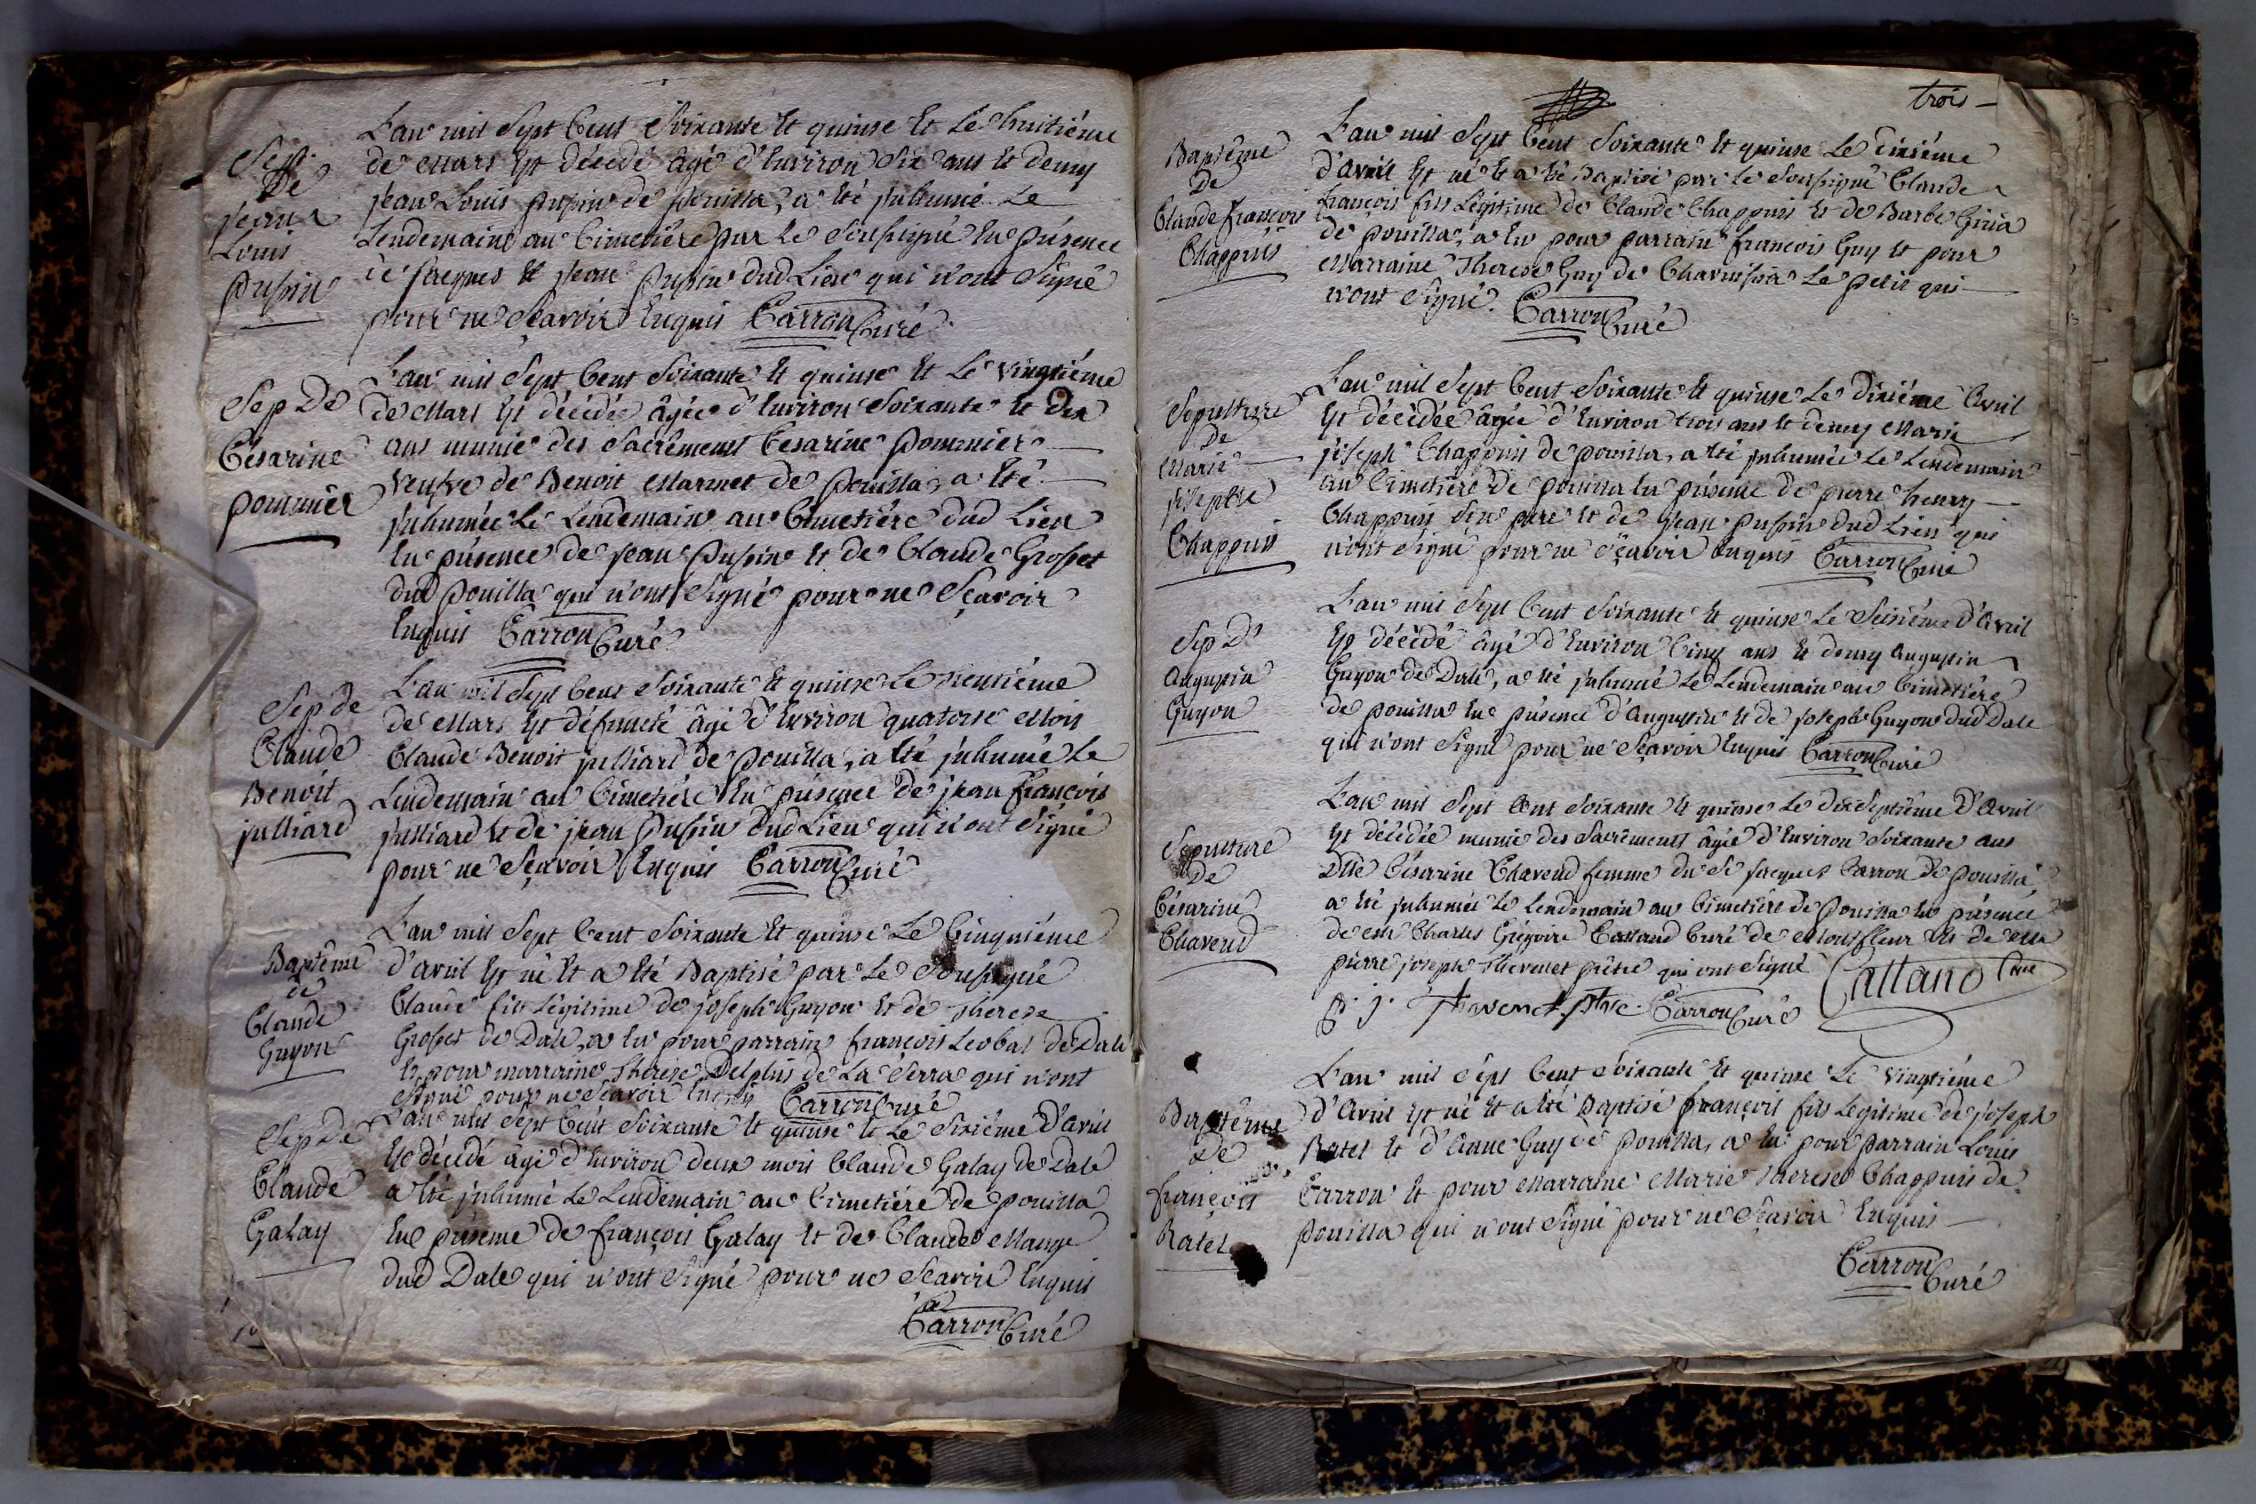 Sep.
De
jean
Louis
pupin
L'an mil Sept Cent Soixante et quinse et Le huitiéme
de Mars est décédé âgé d'Environ Six ans et demy
jean Louis pupin de pouilla, a été juhumé Le
Lendemain au Cimetiére par Le Soussigné En présence
de jacques et jean pupin dud Lieu qui n'ont Signé
pour ne Sçavoir Enquis Carron Curé
Sep De
Césarine
pommier
L'an mil Sept Cent Soixante et quinse et Le vingtiéme
de Mars est décédée âgée d'Environ Soixante et dix
ans munie des Sacrêments Césarine pommier
veufve de Benoit Marmet de pouilla, a été
juhumée Le Lendemain au Cimetiére dud Lieu
En présence de jean pupin et de Claude Grosset
dud pouilla qui n'ont Signé pour ne Sçavoir
Enquis Carron Curé
Sep de
Claude
Benoit
julliard
L'an mil Sept Cent Soixante et quinse Le
de Mars est défuncté âgé d'Environ quatorse Mois
Claude Benoit julliard de pouilla, a été juhumé Le
Lendemain au Cimetiére En présence de jean françois
julliard et de jean pupin dud Lieu qui n'ont Signé
pour ne Sçavoir Enquis Carron Curé
Baptême
de
Claude
Guyon
L'an mil Sept Cent Soixante et quinse Le Cinquiéme
d'avril est né et a été Baptisé par Le Soussigné
Claude fils Légitime de joseph Guyon et de Therese
Grosset de Dale, a Eu pour parrain françois Leobal de Dale
Et pour marraine Therese Delphis de La Serra qui n'ont
Signé pour ne Sçavoir Enquis Carron Curé
Sep De
Claude
Galay
L'an mil Sept Cent Soixante et quinse et Le Sixiéme D'avril
Est décédé âgé d'Environ deux mois Claude Galay de Dale
a été juhumé Le Lendemain au Cimetiére de pouilla
En présence de françois Galay et de Claude Mange
dud Dale qui n'ont Signé pour ne Sçavoir Enquis
Carron Curé
trois
Baptême
De
Claude françois
Chappuis
L'an mil Sept Cent Soixante et quinse Le dixiéme
d'avril est né et a été Baptisé par Le Soussigné Claude
françois fils Légitime de Claude Chappuis et de Barbe Giria
de pouilla, a Eu pour parrain françois Guy et pour
Marraine Therese Guy de Charnissia Le petit qui
n'ont Signé. Carron Curé
Sepulture
de
Marie
josephe
Chappuis
L'an mil Sept Cent Soixante et quinse Le dixiéme Avril
Est décédée âgée d'Environ trois ans et demy Marie
joseph Chappuis de pouilla, a été juhumée Le Lendemain
au Cimetiére de pouilla En présence de pierre henry
Chappuis Son pere et de jean pupin dud Lieu qui
n'ont Signé pour ne Sçavoir Enquis Carron Curé
Sep De
Augustin
Guyon
L'an mil Sept Cent Soixante et quinse Le Seisiéme d'Avril
Est décédé âgé d'Environ Cinq ans et demy Augustin
Guyon de Dale, a été juhumé Le Lendemain au Cimetiére
de pouilla En présence d'Augustin et de joseph Guyon dud Dale
qui n'ont Signé pour ne Sçavoir Enquis Carron Curé
Sepulture
De
Césarine
Chavend
L'an mil Sept Cent Soixante et quinse Le dix Septiéme D'Avril
Est décédée munie des Sacrêments âgée d'Environ Soixante ans
Dlle Césarine Chavend femme du Sr jacques Carron de pouilla
a été juhumée Le Lendemain au Cimetiére de pouilla En présence
de Mre Charles Grégoire Cattand Curé de Montfleur Et de Mre
pierre joseph Thevenet prêtre qui ont Signé Cattand Curé
p. j. Thevenet ptre Carron Curé
Baptême
De
françois
Ratel
L'an mil Sept Cent Soixante et quinse Le vingtiéme
d'Avril est né et a été Baptisé françois fils Légitime de joseph
Ratel et d'Anne Guy de pouilla, a Eu pour parrain Louis
Carron et pour Marraine Marie Therese Chappuis de
pouilla qui n'ont Signé pour ne Sçavoir Enquis
Carron Curé